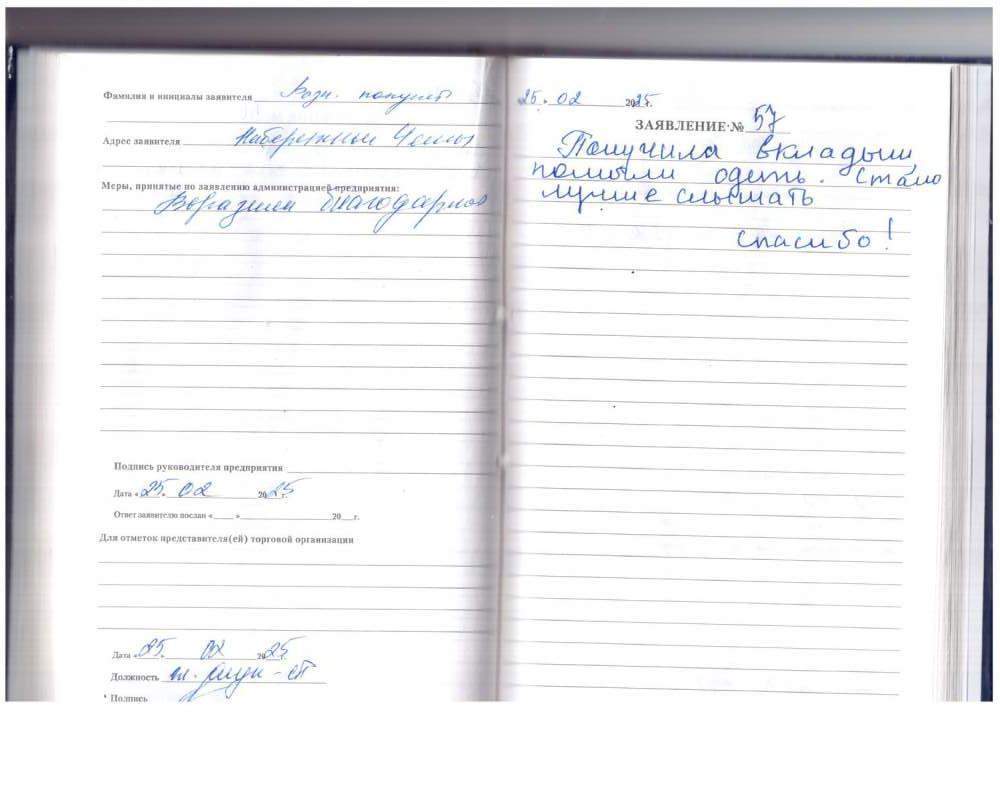 Фамилия и инициалы заявителя
Адрес заявителя Набережные Челны
Меры, принятые по заявлению администрацией предприятия:
благодарность
Подпись руководителя предприятия
Дата « 25. 02 2025 г.
Ответ заявителю послан «____ »____________ 20___г.
Для отметок представителя(ей) торговой организации
Дата « 25. 02 2025 г.
Должность
Подпись
25 » 02 2025 г.
ЗАЯВЛЕНИЕ № 57
Получила вкладыши
помогли одеть. Стало
лучше слышать
спасибо!